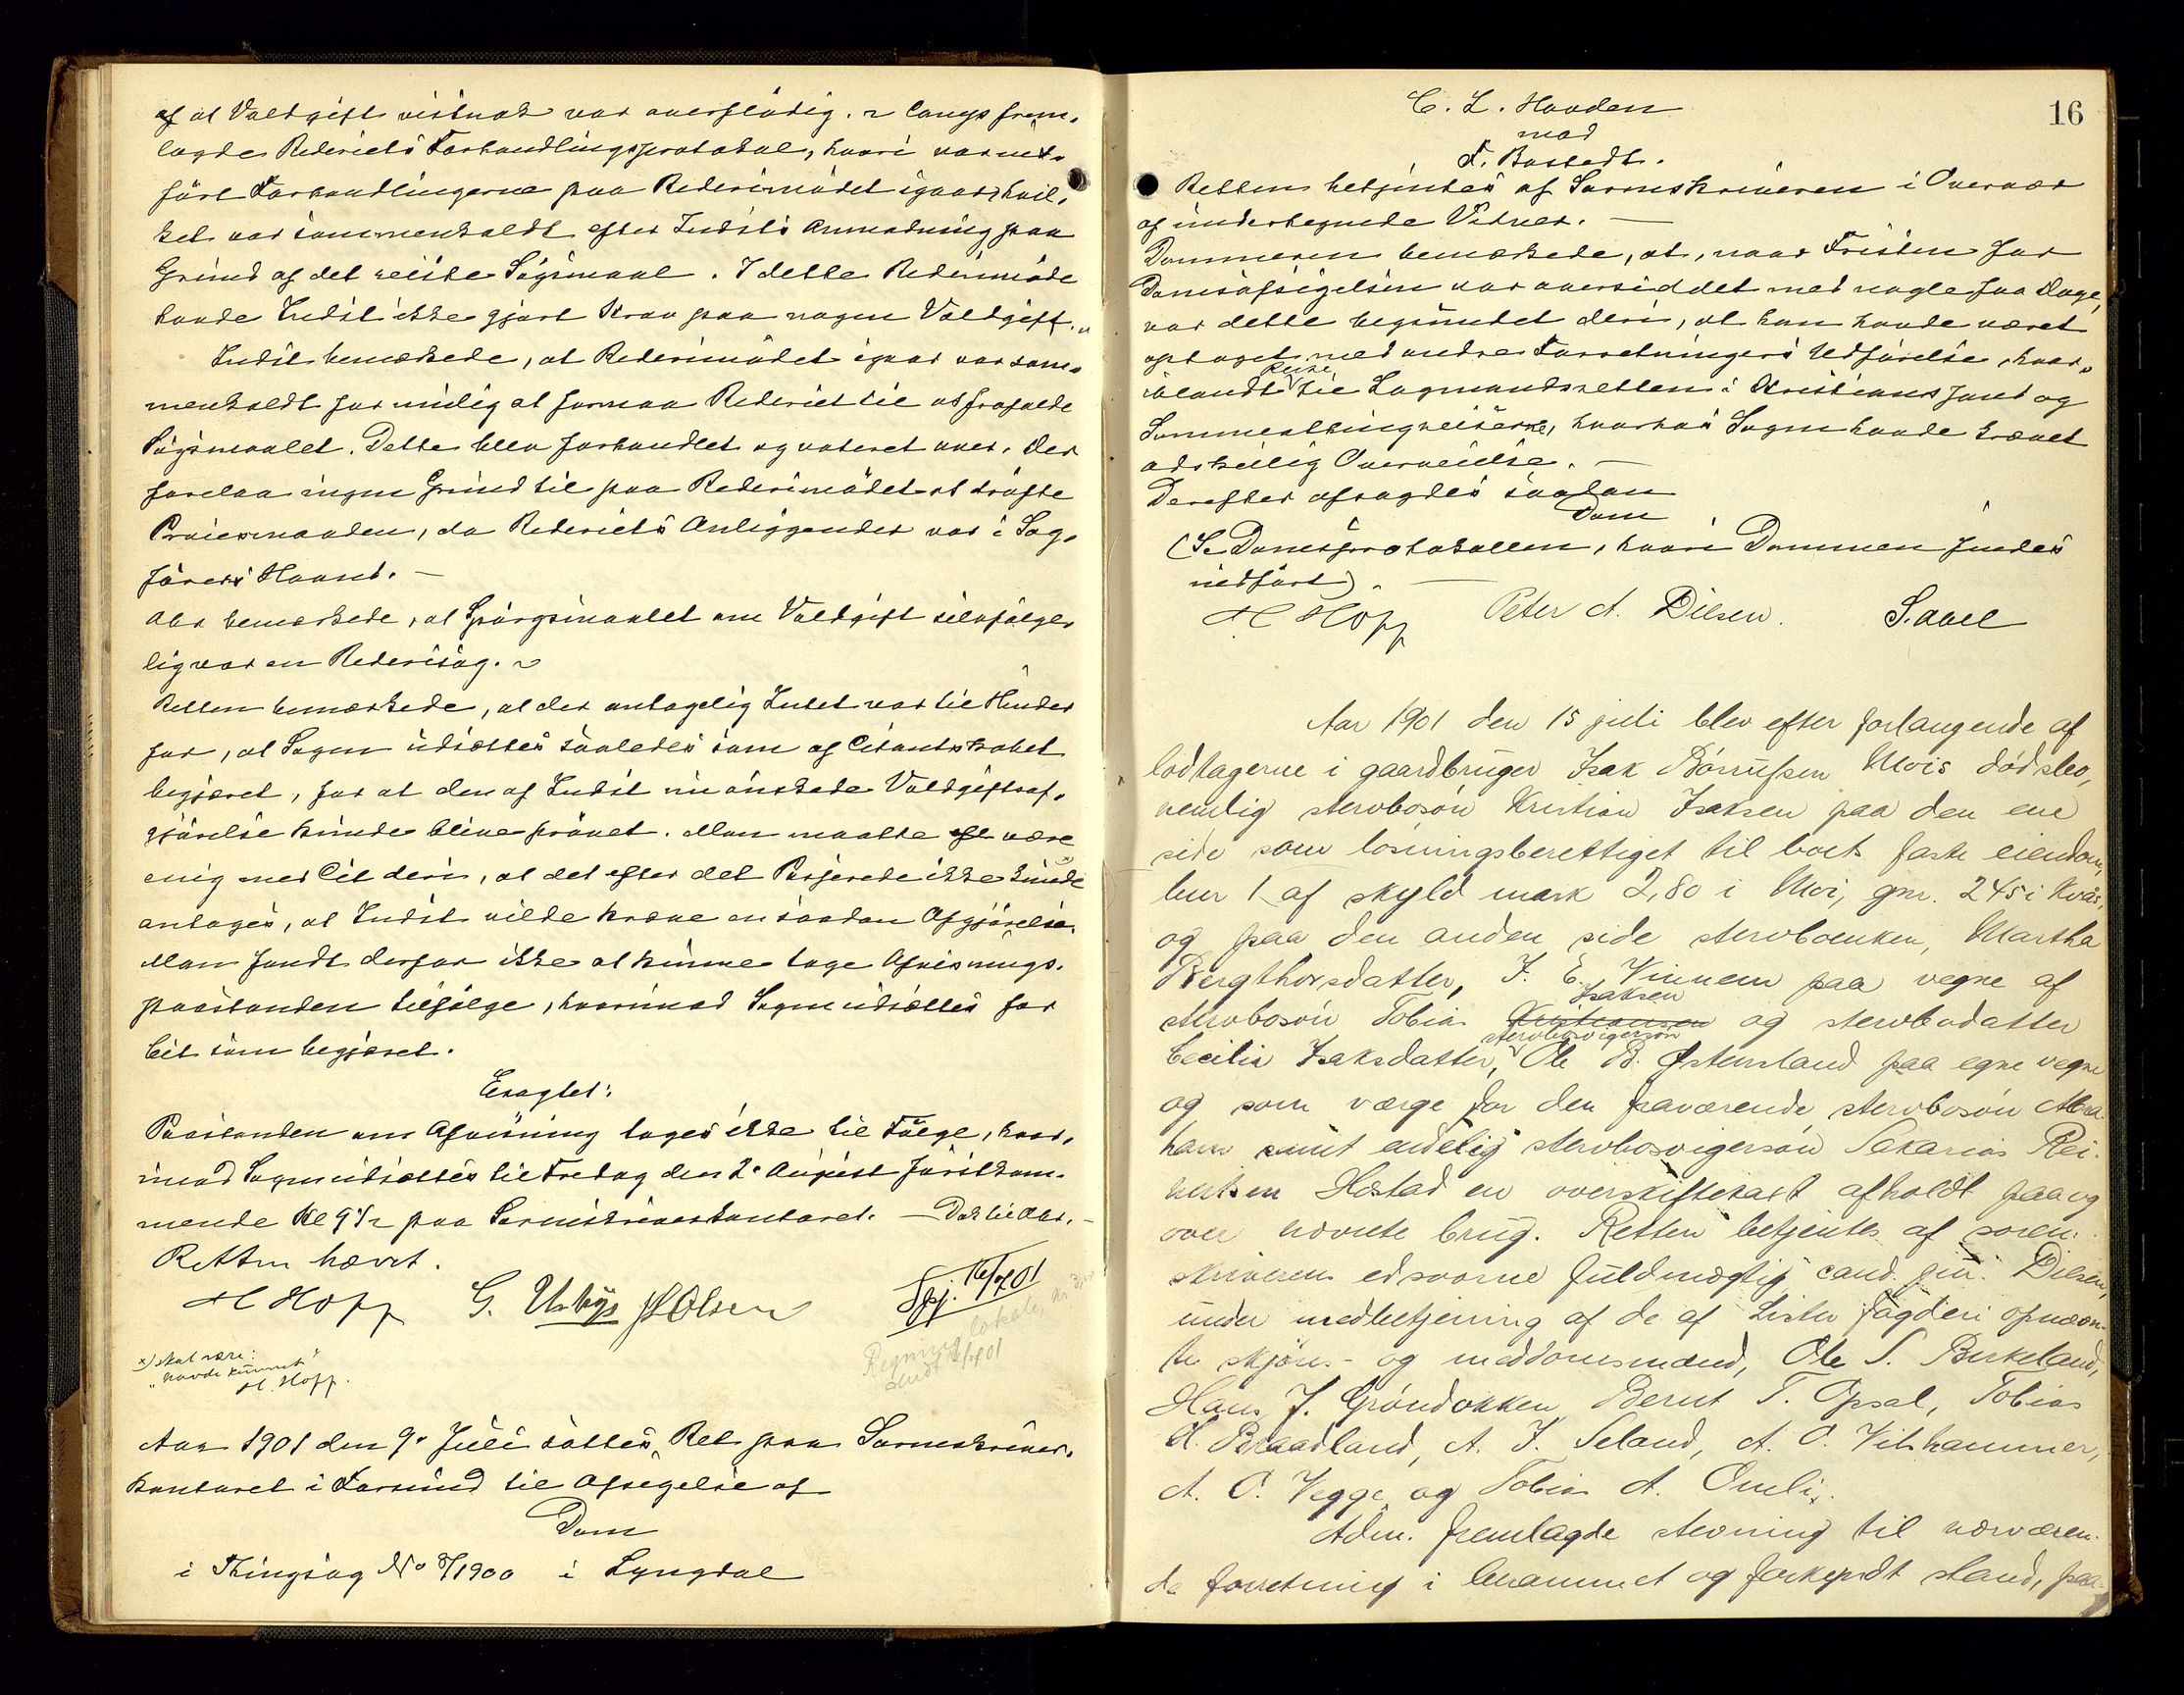 af at Voldgift vistnok var overflødig. ~ Congs frem-
lagde Rederiets Forhandlingsprotokol, hvori var ind-
ført Forhandlingerne paa Rederimødet igaar, hvil-
ket var sammenkaldt efter Indsts Anmodning paa
Grund af det reiste Søgsmaal. I dette Rederimøde
havde Indst ikke gjort Krav paa nogen Voldgift. ~
Indst bemærkede, at Rederimødet igaar var sam-
menkaldt for mulig at formaa Rederiet til at frafalde
Søgsmaalet. Dette blev forhandlet og voteret over. Der
forelaa ingen Grund til paa Rederimødet at drøfte
Prøvesmaaden, da Rederiets Anliggender var i Sag-
førers Haand. —
Abr bemærkede, at Spørgsmaalet om Voldgift selvfølge-
lig var en Rederisag. ~
Retten bemærkede, at der antagelig Intet var til Hinder
for, at Sagen udsættes saaledes som af Citantskabet
begjæret, for at den af Indst nu ønskede Voldgiftsaf-
gjørelse kunde blive prøvet. Man maatte være
enig med Cit deri, at det efter det Passerede ikke kunde
antages, at Indst vilde kræve en saadan Afgjørelse.
Man fandt derfor ikke at kunne tage Afvisnings-
paastanden tilfølge, hvorimod Sagen udsættes for
Cit som begjæret.
Eragtet:
Paastanden om Afvisning tages ikke til Følge, hvor-
imod Sagen udsættes til Fredag den 2. August førstkom-
mende Kl 9 1/2 paa Sorenskriverkontoret. —
Retten hævet.
H Hopp G. Ushys JHOlsen
16/7 01
x) skal være:
"havde kunnet"
H. Hopp.
Aar 1901 den 9. Juli sattes Ret paa Sorenskriver-
kontoret i Farsund til Afsigelse af
Dom
i Thingsag No 8/1900 i Lyngdal
16
C. L. Haaden
mod
F. Bastedt.
Retten betjentes af Sorenskriveren i Overvær
af undertegnede Vidner. —
Dommeren bemærkede, at, naar Fristen for
Domsafsigelsen var oversiddet med nogle faa Dage,
var dette begrundet deri, at han havde været
optaget med andre Forretningers Udførelse, hvor-
iblandt Reise til Lagmandsretten i Kristianssand og
Sommerthingreiserne, hvorhos Sagen havde krævet
adskillig Overveielse. —
Derefter afsagdes saadan
Dom
(Se Domsprotokollen, hvori Dommen findes
indført). —
H Hopp Peter A. Dilsen. S. Aael
Aar 1901 den 15 juli blev efter forlangende af
lodtagerne i gaardbruger Isak Børrufsen Mois dødsbo,
nemlig stervbosøn Kristian Isaksen paa den ene
side som løsningsberettiget til boets faste eiendom,
bnr 1 af skyld mark 2,80 i Moi, gnr. 245 i Kvås,
og paa den anden side stervboenken, Martha
Bergthorsdatter, J. E. Vinnem paa vegne af
stervbosøn Tobias Kristiansen Isaksen og stervbodatter
Cecilia Isaksdatter, stervbosvigersøn Ole B. Østensland paa egne vegne
og som værge for den fraværende stervbosøn Abra-
ham samt endelig stervbosvigersøn Sakarias Rei-
ertsen Hæstad en overskiftetakst afholdt paa og
over nævnte brug. Retten betjentes af soren-
skriverens edsvorne fuldmægtig cand. jur. Dilsen,
under medbetjening af de af Lister fogderi opnævn-
te skjøns- og meddomsmænd, Ole S. Birkeland,
Hans J. Grøndokken Bernt T. Opsal, Tobias
H. Braadland, A. J. Seland, A. O. Vitshammer,
A. O. Vegge og Tobias A. Omli.
Adm. fremlagde stevning til nærværen-
de forretning i berammet og forkyndt stand, paa-